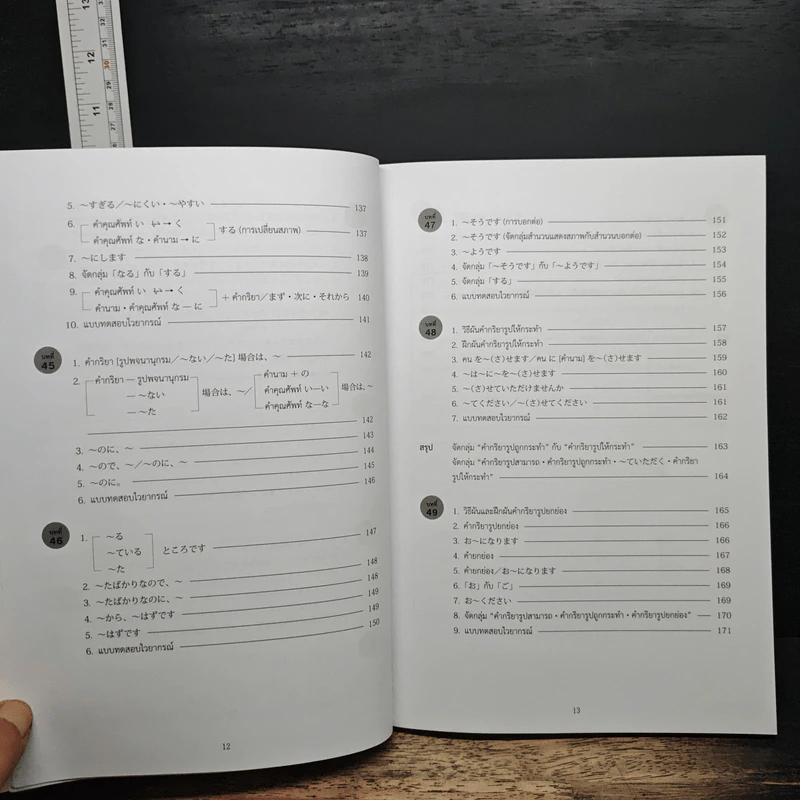 5. ~すぎる/~にくい・~やすい 137
6. คำคุณศัพท์ い い → く
คำคุณศัพท์ な・คำนาม → に
する (การเปลี่ยนสภาพ) 137
7. ~にします 138
8. จัดกลุ่ม「なる」กับ「する」 139
9. คำคุณศัพท์ い い → く
คำนาม・คำคุณศัพท์ な — に
+ คำกริยา/まず・次に・それから 140
10. แบบทดสอบไวยากรณ์ 141
บทที่ 45
1. คำกริยา [รูปพจนานุกรม/~ない/~た] 場合は、~ 142
2. คำกริยา — รูปพจนานุกรม
— ~ない
— ~た
場合は、~/
คำนาม + の
คำคุณศัพท์ い—い
คำคุณศัพท์ な—な
場合は、~
142
3. ~のに、~ 143
4. ~ので、~/~のに、~ 144
5. ~のに。 145
6. แบบทดสอบไวยากรณ์ 146
บทที่ 46
1. ~る
~ている
~た
ところです 147
2. ~たばかりなので、~ 148
3. ~たばかりなのに、~ 148
4. ~から、~はずです 149
5. ~はずです 149
6. แบบทดสอบไวยากรณ์ 150
12
บทที่ 47
1. ~そうです (การบอกต่อ) 151
2. ~そうです (จัดกลุ่มสำนวนแสดงสภาพกับสำนวนบอกต่อ) 152
3. ~ようです 153
4. จัดกลุ่ม「~そうです」กับ「~ようです」 154
5. จัดกลุ่ม「する」 155
6. แบบทดสอบไวยากรณ์ 156
บทที่ 48
1. วิธีผันคำกริยารูปให้กระทำ 157
2. ฝึกผันคำกริยารูปให้กระทำ 158
3. คน を~(さ)せます/คน に [คำนาม] を~(さ)せます 159
4. ~は~に~を~(さ)せます 160
5. ~(さ)せていただけませんか 161
6. ~てください/~(さ)せてください 161
7. แบบทดสอบไวยากรณ์ 162
สรุป จัดกลุ่ม "คำกริยารูปถูกกระทำ" กับ "คำกริยารูปให้กระทำ" 163
จัดกลุ่ม "คำกริยารูปสามารถ・คำกริยารูปถูกกระทำ・~ていただく・คำกริยา
รูปให้กระทำ" 164
บทที่ 49
1. วิธีผันและฝึกผันคำกริยารูปยกย่อง 165
2. คำกริยารูปยกย่อง 166
3. お~になります 166
4. คำยกย่อง 167
5. คำยกย่อง/お~になります 168
6.「お」กับ「ご」 169
7. お~ください 169
8. จัดกลุ่ม "คำกริยารูปสามารถ・คำกริยารูปถูกกระทำ・คำกริยารูปยกย่อง" 170
9. แบบทดสอบไวยากรณ์ 171
13